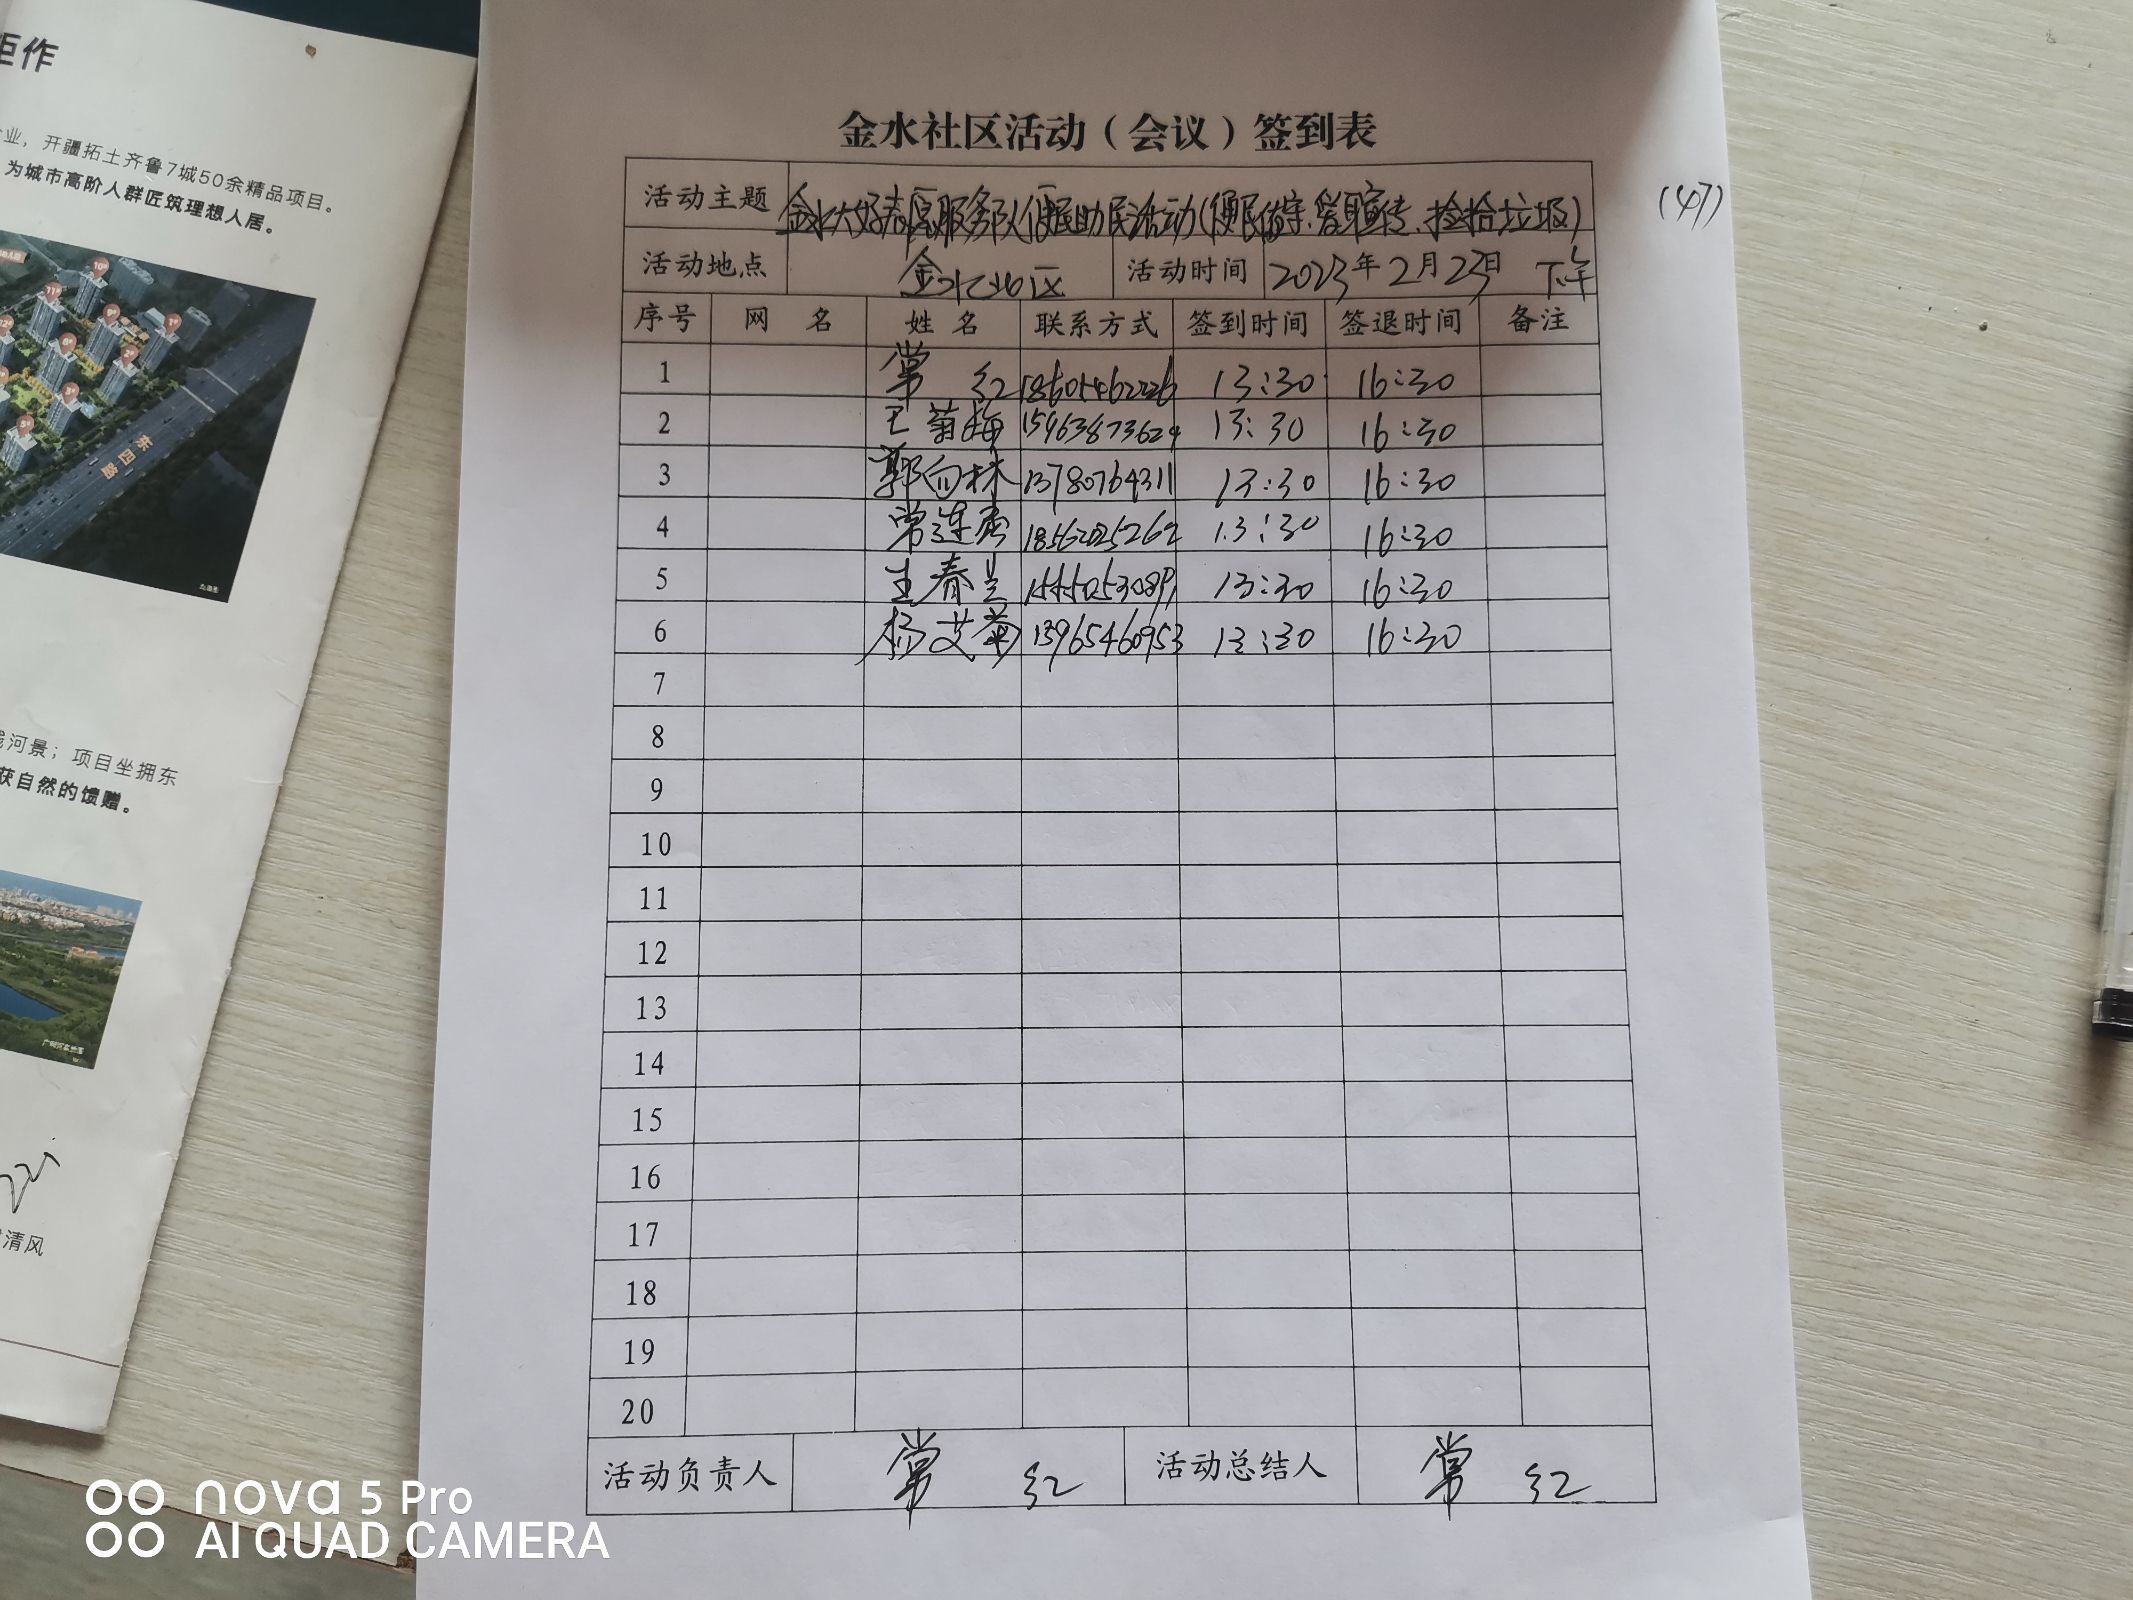 巨作
业，开疆拓土齐鲁7城50余精品项目。
为城市高阶人群匠筑理想人居。
东四路
河景；项目坐拥东
获自然的馈赠。
清风
金水社区活动（会议）签到表
(47)
活动主题 金水大好志愿服务队便民助民活动(便民 宣传、捡拾垃圾)
活动地点 金水社区 活动时间 2023年2月23日 下午
序号 网 名 姓 名 联系方式 签到时间 签退时间 备注
1 常 红 13:30 16:30
2 王菊梅 15963873624 13:30 16:30
3 郭向林 13780764311 13:30 16:30
4 常连秀 18562025262 13:30 16:30
5 王春兰 13:30 16:30
6 杨艾菊 13965460953 13:30 16:30
7
8
9
10
11
12
13
14
15
16
17
18
19
20
活动负责人 常 红 活动总结人 常 红
nova 5 Pro
AI QUAD CAMERA